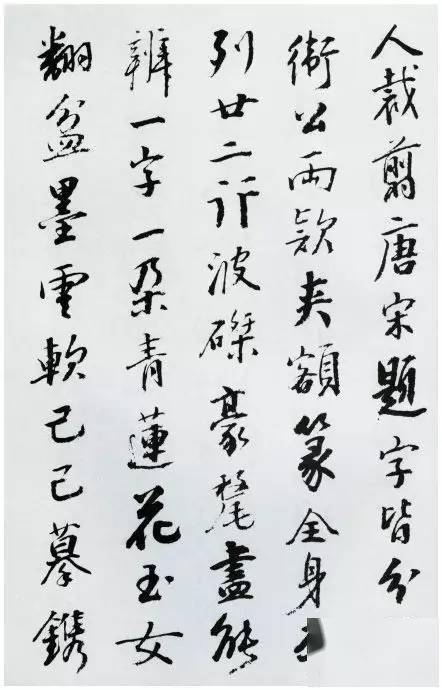 人裁翦唐宋題字皆分
衛公兩款夾額篆全身
列廿二行波磔豪氂盡能
辨一字一朵青蓮花玉女
翻盆墨雲軟己巳摹鐫